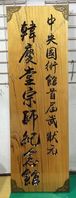 中央國術館首屆武狀元
韓慶堂宗師紀念館